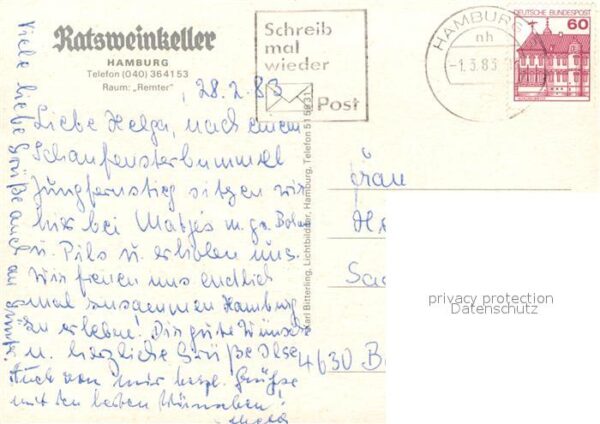 Ratsweinkeller
HAMBURG
Telefon (040) 364153
Raum: „Remter"
Schreib
mal
wieder
Post
HAMBURG
nh
-1.3.83
DEUTSCHE BUNDESPOST
60
28.2.83
Liebe Helga, nach einem
Schaufensterbummel
Jungfernstieg sitzen wir
hier bei Matjes m. gr. Bohnen
u. Pils u. erholen uns.
Wir freuen uns endlich
mal zusammen Hamburg
zu erleben! Dir gute Wünsche
u. herzliche Grüße Ilse
Auch von mir herzl. Grüße
mit den besten Wünschen!
Viele liebe Grüße auch an
Karl Bitterling, Lichtbildner, Hamburg, Telefon
Frau
4630 B
privacy protection
Datenschutz